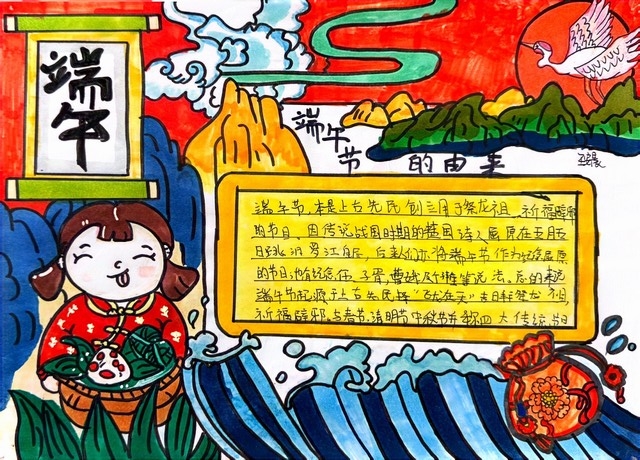 端午
端午节的由来
端午节,本是上古先民创立用于祭龙祖、祈福辟邪
的节日。因传说战国时期的楚国诗人屈原在五月
日跳汨罗江自尽,后来人们亦将端午节作为纪念屈原
的节日;也有纪念伍子胥,曹娥及介子推等说法。总的来说
端午节起源于上古先民择“飞龙在天”吉日祭龙祖、
祈福辟邪。与春节、清明节、中秋节并称四大传统节日